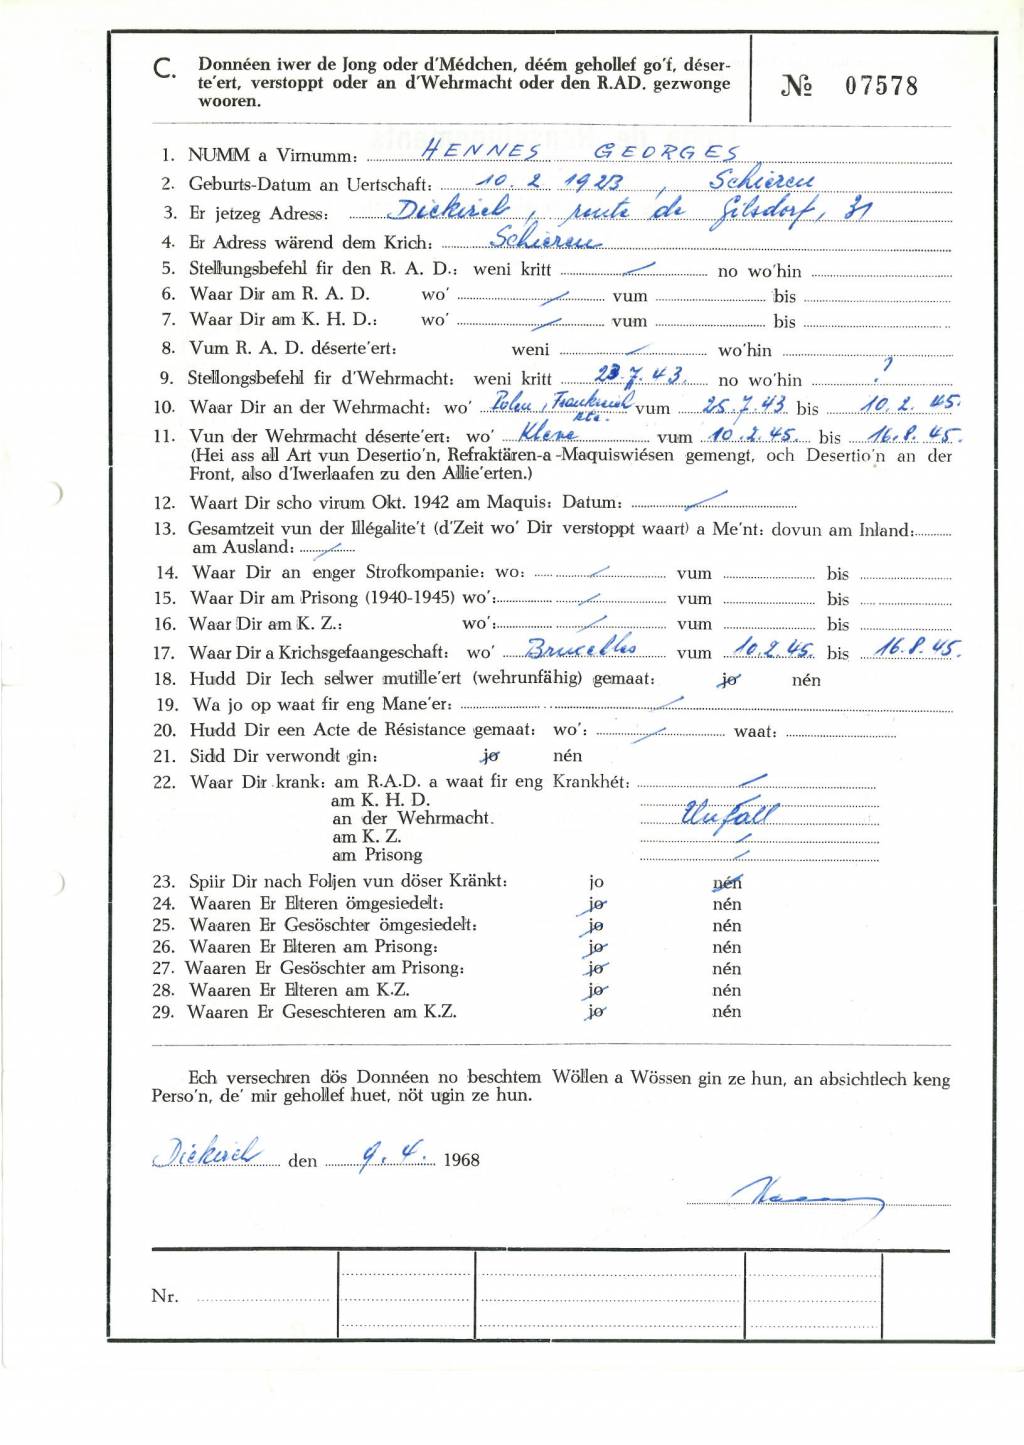 C. Donnéen iwer de Jong oder d'Médchen, déém gehollef go'f, déser-
te'ert, verstoppt oder an d'Wehrmacht oder den R.AD. gezwonge
wooren.
№ 07578
1. NUMM a Virnumm: HENNES GEORGES
2. Geburts-Datum an Uertschaft: 10. 2. 1923, Schieren
3. Er jetzeg Adress: Diekirch, route de Gilsdorf, 31
4. Er Adress wärend dem Krich: Schieren
5. Stellungsbefehl fir den R. A. D.: weni kritt / no wo'hin
6. Waar Dir am R. A. D. wo' / vum bis
7. Waar Dir am K. H. D.: wo' / vum bis
8. Vum R. A. D. déserte'ert: weni / wo'hin
9. Stellongsbefehl fir d'Wehrmacht: weni kritt 23. 7. 43. no wo'hin ?
10. Waar Dir an der Wehrmacht: wo' Polen, Frankreich etc. vum 25. 7. 43 bis 10. 2. 45.
11. Vun der Wehrmacht déserte'ert: wo' Kleve vum 10. 2. 45. bis 16. 8. 45.
(Hei ass all Art vun Desertio'n, Refraktären-a-Maquiswiésen gemengt, och Desertio'n an der
Front, also d'Iwerlaafen zu den Allie'erten.)
12. Waart Dir scho virum Okt. 1942 am Maquis: Datum: /
13. Gesamtzeit vun der Illégalite't (d'Zeit wo' Dir verstoppt waart) a Me'nt: dovun am Inland:
am Ausland: /
14. Waar Dir an enger Strofkompanie: wo: / vum bis
15. Waar Dir am Prisong (1940-1945) wo': / vum bis
16. Waar Dir am K. Z.: wo': / vum bis
17. Waar Dir a Krichsgefaangeschaft: wo' Bruxelles vum 10. 2. 45. bis 16. 8. 45.
18. Hudd Dir Iech selwer mutille'ert (wehrunfähig) gemaat: jo nén
19. Wa jo op waat fir eng Mane'er: /
20. Hudd Dir een Acte de Résistance gemaat: wo': / waat:
21. Sidd Dir verwondt gin: jo nén
22. Waar Dir krank: am R.A.D. a waat fir eng Krankhét: /
am K. H. D. /
an der Wehrmacht. Unfall
am K. Z. /
am Prisong /
23. Spiir Dir nach Foljen vun döser Kränkt: jo nén
24. Waaren Er Elteren ömgesiedelt: jo nén
25. Waaren Er Gesöschter ömgesiedelt: jo nén
26. Waaren Er Elteren am Prisong: jo nén
27. Waaren Er Gesöschter am Prisong: jo nén
28. Waaren Er Elteren am K.Z. jo nén
29. Waaren Er Geseschteren am K.Z. jo nén
Ech versechren dös Donnéen no beschtem Wöllen a Wössen gin ze hun, an absichtlech keng
Perso'n, de' mir gehollef huet, nöt ugin ze hun.
Diekirch den 9. 4. 1968
Nr.